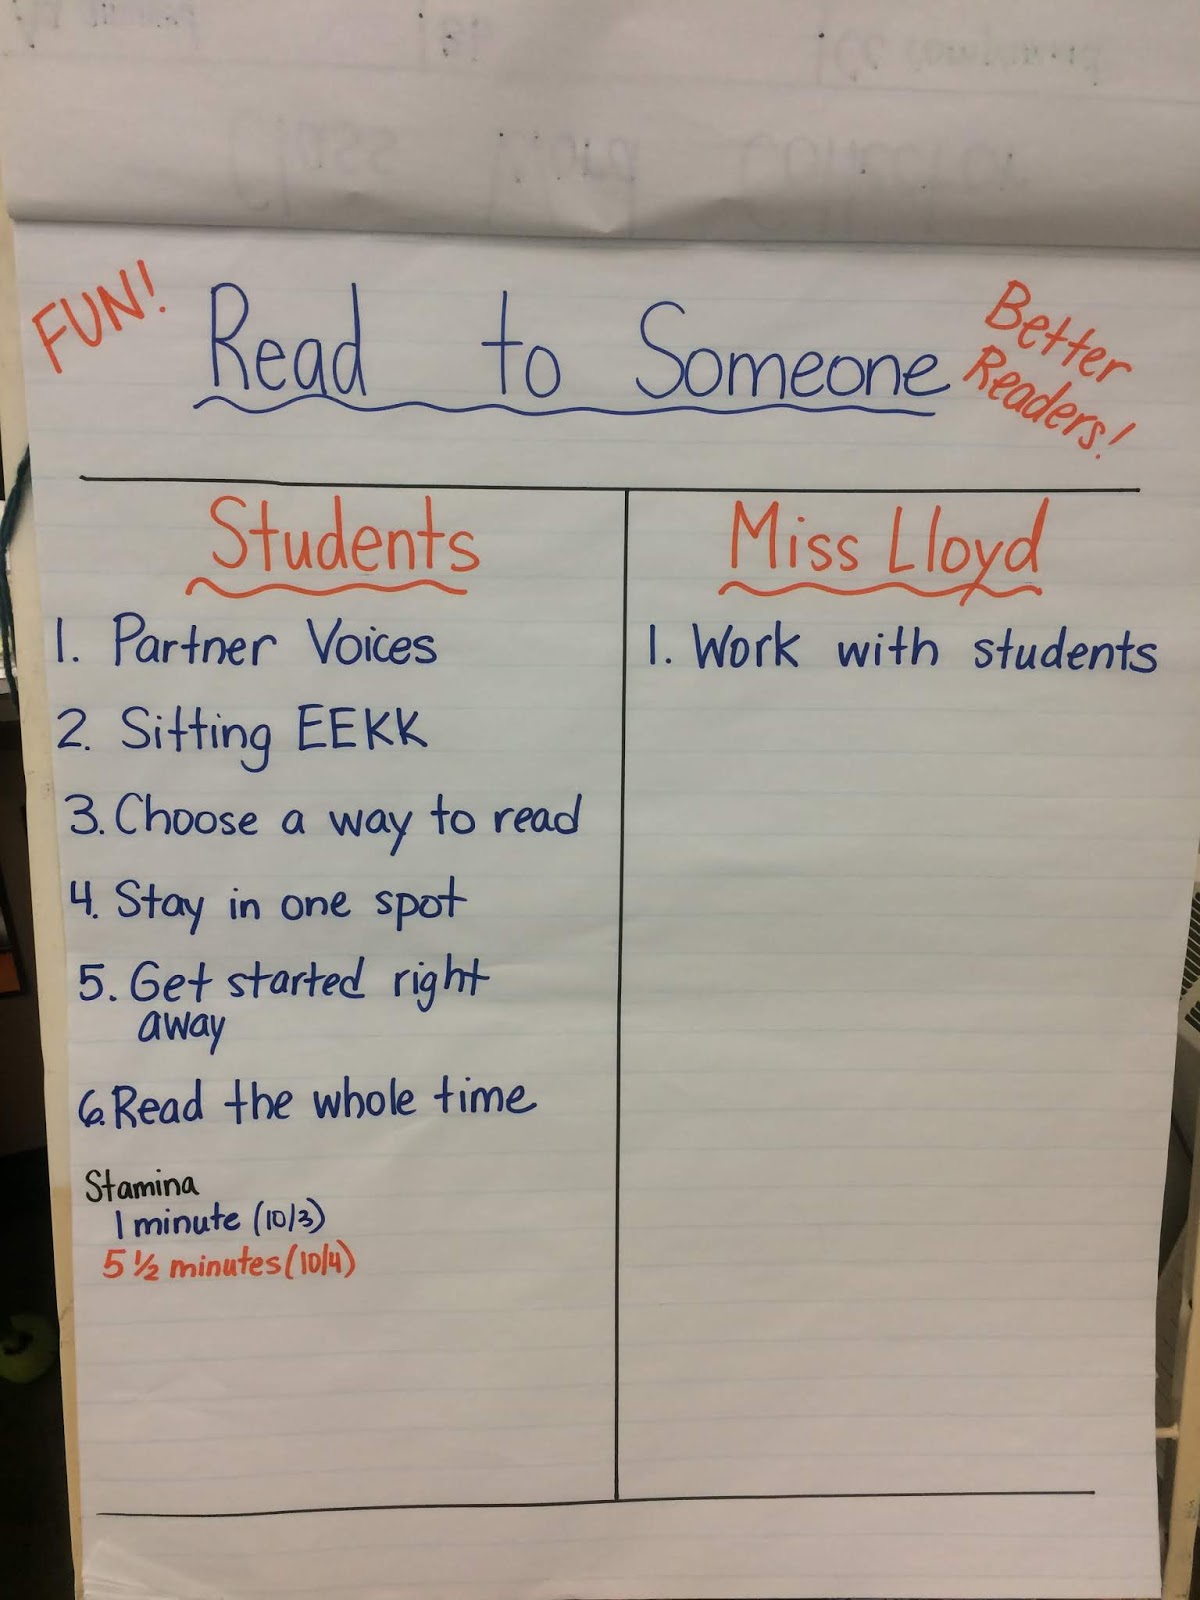 FUN!
Read to Someone
Better
Readers!
Students
1. Partner Voices
2. Sitting EEKK
3. Choose a way to read
4. Stay in one spot
5. Get started right
away
6. Read the whole time
Stamina
1 minute (10/3)
5 ½ minutes (10/4)
Miss Lloyd
1. Work with students